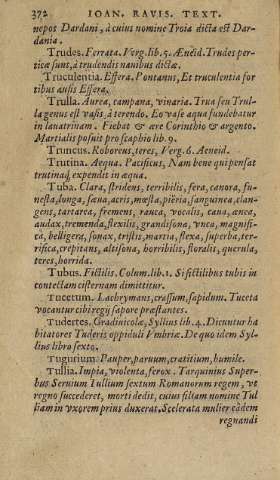 372 IOAN. RAVIS. TEXT.
nepos Dardani, à cuius nomine Troia dicta est Dar-
dania.
Trudes. Ferrata. Verg. lib. 5. Æneid. Trudes per-
ticæ sunt, à trudendi nanibus dictæ.
Truculentia. Effera. Pontanus, Et truculentia for
tibus ausis Effera.
Trulla. Aurea, campana, vinaria. Trua seu Trul-
la genus est vasis, à terendo. Eo vase aqua fundebatur
in lauatrinam. Fiebat & ære Corinthio & argento.
Martialis posuit pro scaphio lib. 9.
Truncus. Roborens, teres, Verg. 6. Aeneid.
Trutina. Aequa. Pacificus, Nam bene qui pensat
trutinaq; expendit in æqua.
Tuba. Clara, stridens, terribilis, fera, canora, fu-
nesta, longa, sæua, acris, mœsta, pieria, sanguinea, clan-
gens, tartarea, fremens, rauca, vocalis, caua, ænea,
audax, tremenda, flexilis, grandisona, vnca, magnifi-
ca, belligera, sonax, tristis, martia, flexa, superba, ter-
rifica, crepitans, altisona, horribilis, floralis, querula,
teres, horrida.
Tubus. Fictilis. Colum. lib. 1. Si fictilibus tubis in
contectam cisternam dimittitur.
Tucetum. Lacbrymans, crassum, sapidum. Tuceta
vocantur cibi regij sapore præstantes.
Tudertes. Gradinicolæ, Syllius lib. 4. Dicuntur ha
bitatores Tuderis oppiduli Vmbriæ. De quo idem Syl-
lius libro sexto.
Tugurium. Pauper, paruum, cratitium, humile.
Tullia. Impia, violenta, ferox. Tarquinius Super-
bus Seruium Tullium sextum Romanorum regem, vt
regno succederet, morti dedit, cuius filiam nomine Tul
liam in vxorem prius duxerat. Scelerata mulier eâdem
regnandi